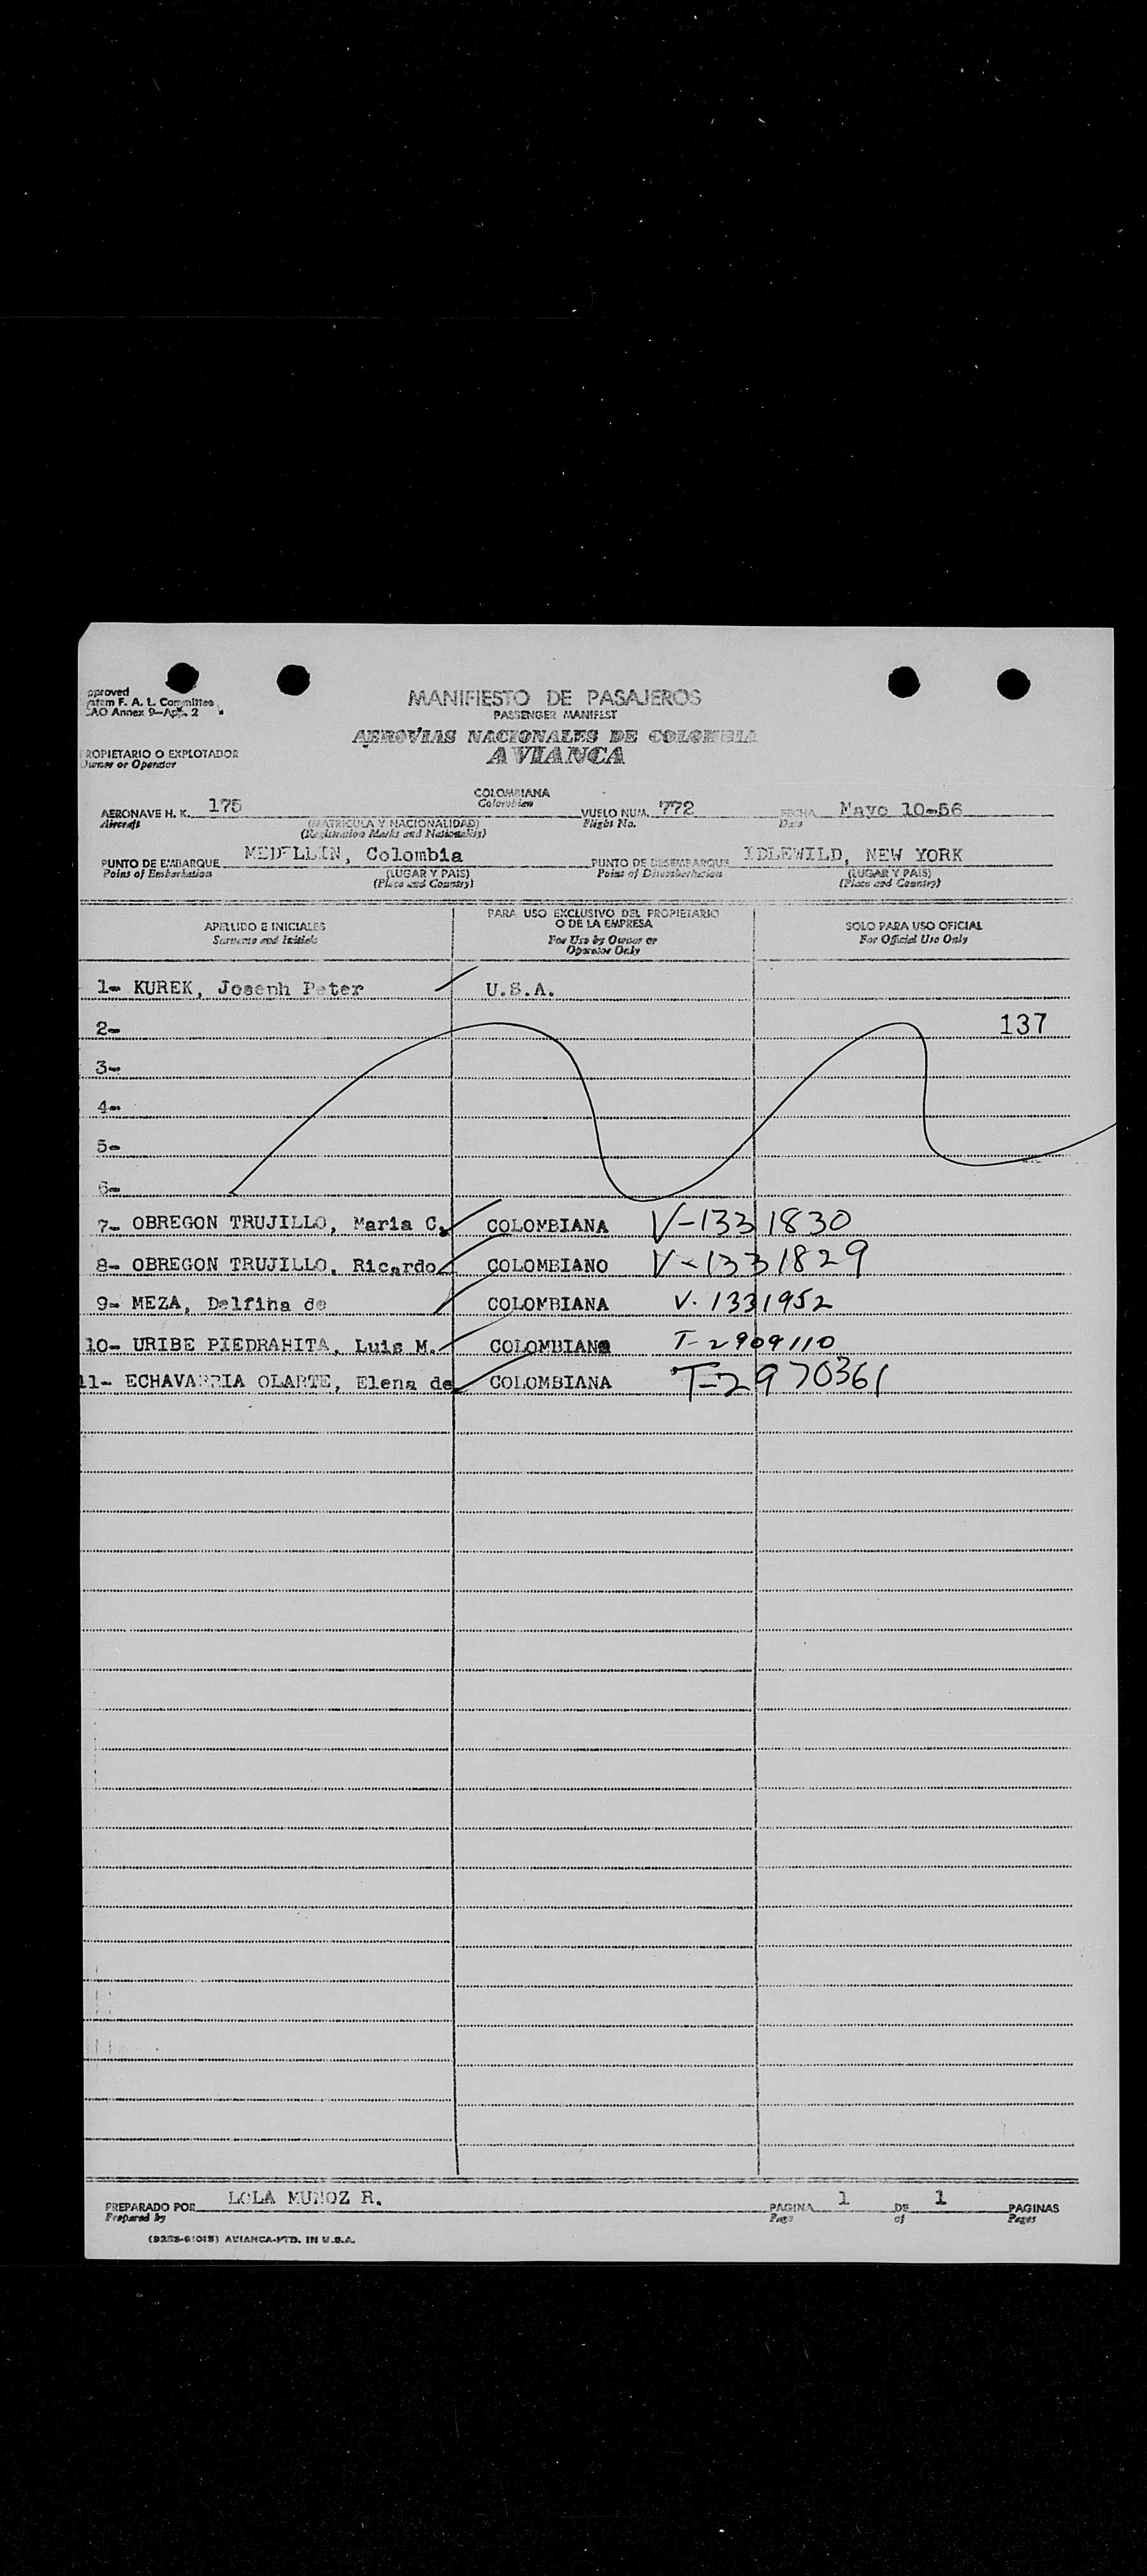 pproved
stem F. A. L. Committee
CAO Annex 9-App. 2
MANIFIESTO DE PASAJEROS
PASSENGER MANIFEST
AEROVIAS NACIONALES DE COLOMBIA
AVIANCA
ROPIETARIO O EXPLOTADOR
Owner or Operator
COLOMBIANA
Colombian
AERONAVE H. K. 175 VUELO NUM. 772 FECHA Mayo 10-56
Aircraft (MATRICULA Y NACIONALIDAD) Flight No. Date
(Registration Marks and Nationality)
PUNTO DE EMBARQUE MEDELLIN, Colombia PUNTO DE DESEMBARQUE IDLEWILD, NEW YORK
Point of Embarkation (LUGAR Y PAIS) Point of Disembarkation (LUGAR Y PAIS)
(Place and Country) (Place and Country)
APELLIDO E INICIALES PARA USO EXCLUSIVO DEL PROPIETARIO O DE LA EMPRESA SOLO PARA USO OFICIAL
Surname and Initials For Use by Owner or Operator Only For Official Use Only
1- KUREK, Joseph Peter U.S.A.
2- 137
3-
4-
5-
6-
7- OBREGON TRUJILLO, Maria C. COLOMBIANA V-1331830
8- OBREGON TRUJILLO, Ricardo COLOMBIANO V-1331829
9- MEZA, Delfina de COLOMBIANA V. 1331952
10- URIBE PIEDRAHITA, Luis M. COLOMBIANO T-2909110
11- ECHAVARRIA OLARTE, Elena de COLOMBIANA T-2970361
PREPARADO POR LOLA MUÑOZ R. PAGINA 1 DE 1 PAGINAS
Prepared by Page of Pages
AVIANCA-PTD. IN U.S.A.